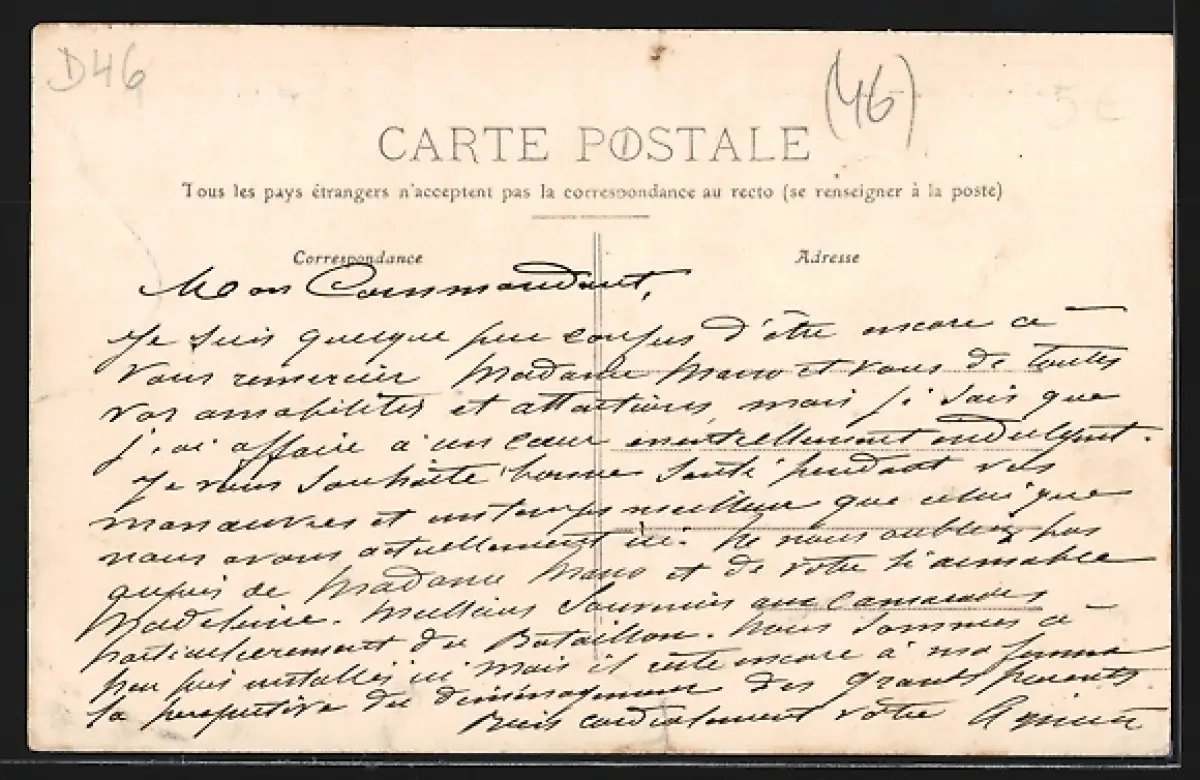 D46
(46)
5 €
CARTE POSTALE
Tous les pays étrangers n'acceptent pas la correspondance au recto (se renseigner à la poste)
Correspondance
Adresse
Mon Commandant,
Je suis quelque peu confus d'être encore à
vous remercier Madame et vous de toutes
vos amabilités et attentions, mais je sais que
j'ai affaire à un cœur indulgent.
Je vous souhaite bonne santé pendant vos
manœuvres et un temps meilleur que celui que
nous avons actuellement ici. Ne nous oubliez pas
auprès de Madame et de votre si aimable
Madeleine. Meilleurs souvenirs aux camarades
particulièrement du Bataillon. Nous sommes à
peu près installés ici mais il reste encore à ma femme
la perspective du déménagement des grands parents.
Bien cordialement vôtre